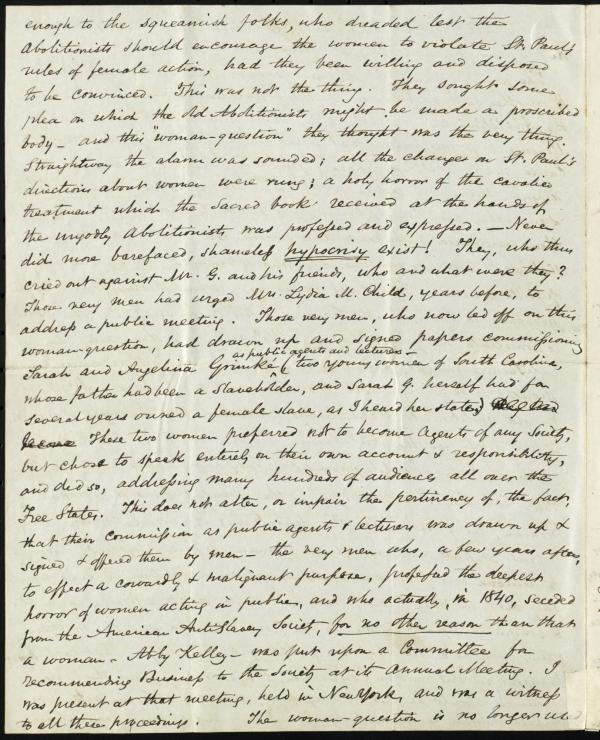 enough to the squeamish folks, who dreaded lest the
Abolitionists should encourage the women to violate St. Paul's
rules of female action, had they been willing and disposed
to be convinced. This was not the thing. They sought some
plea on which the old Abolitionists might be made a proscribed
body - and this "woman-question" they thought was the very thing.
Straightway the alarm was sounded; all the changes on St. Paul's
directions about women were rung; a holy horror of the cavalier
treatment which the Sacred book received at the hands of
the ungodly Abolitionists was professed and expressed. — Never
did more barefaced, shameless hypocrisy exist! They, who thus
cried out against Mr. G. and his friends, who and what were they?
Those very men had urged Mrs. Lydia M. Child, years before, to
address a public meeting. Those very men, who now led off on this
woman-question, had drawn up and signed papers commissioning
as public agents and lecturers -
Sarah and Angelina Grimké (two young women of South Carolina,
whose father had been a Slaveholder, and Sarah G. herself had for
several years owned a female slave, as I heard her state,)
These two women preferred not to become Agents of any Society,
but chose to speak entirely on their own account & responsibility,
and did so, addressing many hundreds of audiences all over the
Free States. This does not alter, or impair the pertinency of, the fact,
that their commission as public agents & lecturers was drawn up &
signed & offered them by men - the very men who, a few years after,
to effect a cowardly & malignant purpose, professed the deepest
horror of women acting in public, and who actually, in 1840, seceded
from the American AntiSlavery Society, for no other reason than that
a woman - Abby Kelley - was put upon a Committee for
recommending Business to the Society at its Annual Meeting. I
was present at that meeting, held in New York, and was a witness
to all these proceedings. The woman-question is no longer used